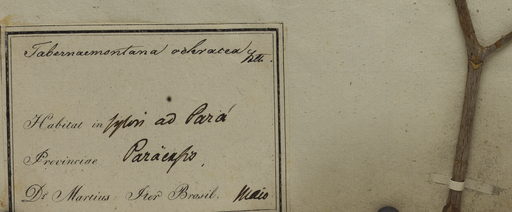 Tabernaemontana ochracea
Habitat in sylvis ad Pará
Provinciae Paraensis,
Dr Martius Iter Brasil. Maio